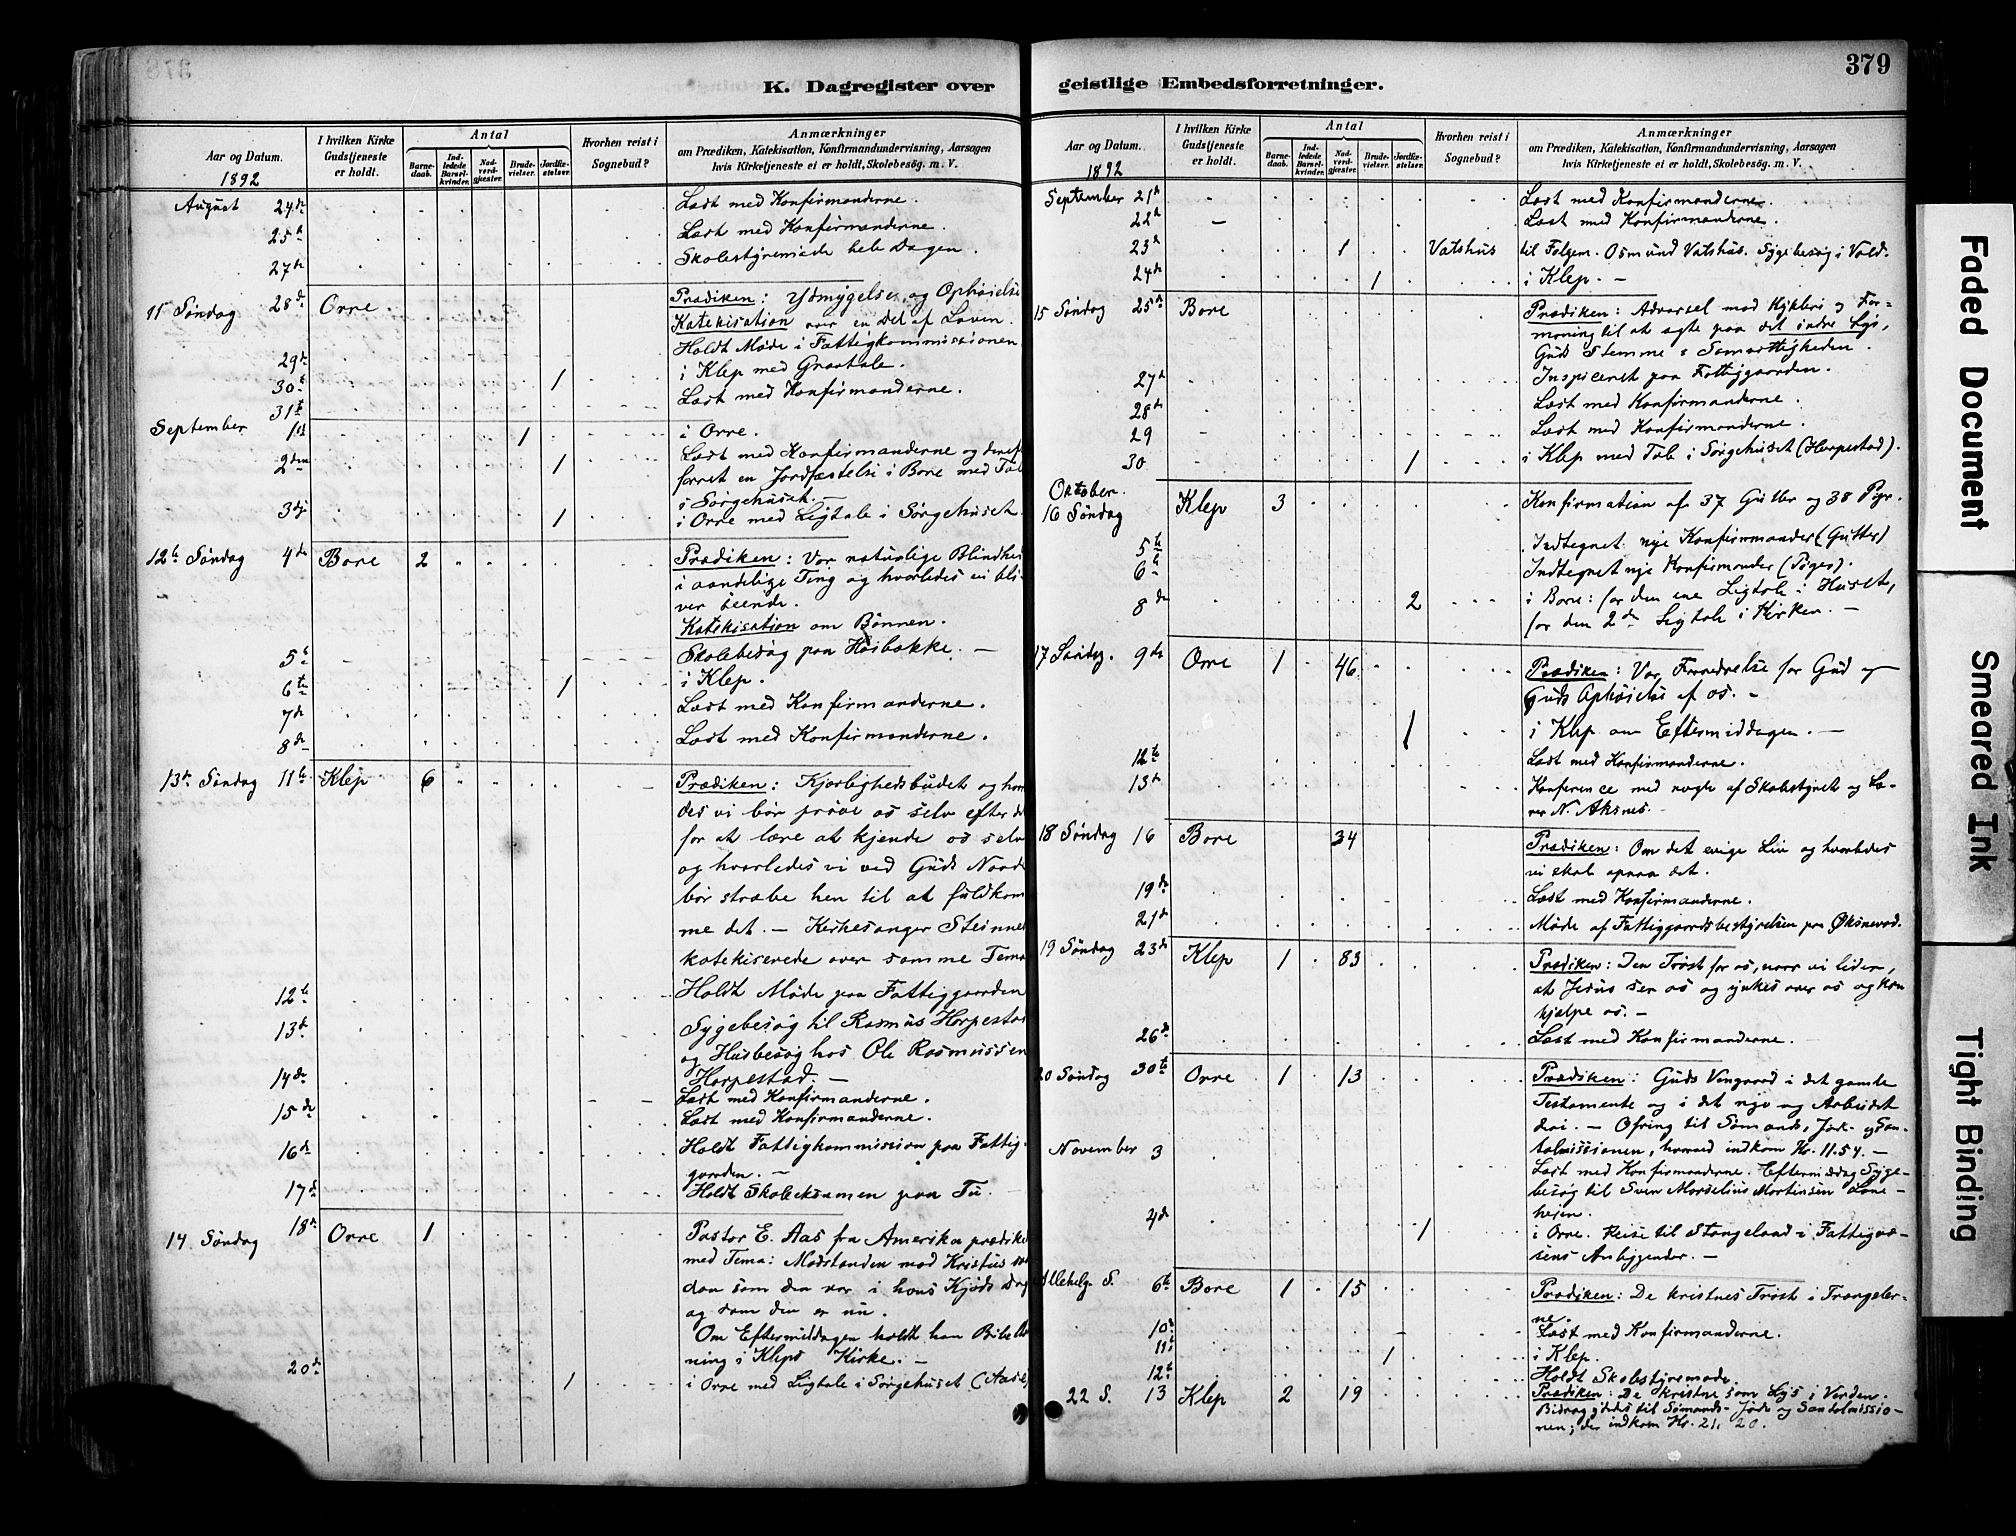 379
K. Dagregister over
Aar og Datum.
1892
I hvilken Kirke Gudstjeneste er holdt.
Antal
Barnedaab.
Indledede Barselkvinder.
Nadverdgjester.
Brudevielser.
Jordfæstelser.
Hvorhen reist i Sognebud?
Anmærkninger
om Prædiken, Katekisation, Konfirmandundervisning, Aarsagen
hvis Kirketjeneste ei er holdt, Skolebesøg. m. V.
August 24de Læst med Konfirmanderne.
25de Læst med Konfirmanderne.
27de Skolestyremøde hele Dagen.
11 Søndag 28de Orre Prædiken: Ydmygelse og Ophøielse
Katekisation over en Del af Loven.
29de Holdt Møde i Fattigkommissionen
30te 1 i Klep med Gravtale.
31te Læst med Konfirmanderne.
September 1ste 1 i Orre.
2den 1 Læst med Konfirmanderne og deref
forret en Jordfæstelse i Bore med Tale
i Sørgehuset.
3die 1 i Orre med Ligtale i Sørgehuset
12te Søndag 4de Bore 2 Prædiken: Vor naturlige Blindhe
i aandelige Ting og hvorledes vi bli-
ver seende.
Katekisation om Bønnen.
5te Skolebesøg paa Høibakke. —
6te 1 i Klep.
7de Læst med Konfirmanderne.
8de Læst med Konfirmanderne.
13de Søndag 11te Klep 6 Prædiken: Kjærlighedsbudet og hvor
des vi bør prøve os selv efter det
for at lære at kjende os selv
og hvorledes vi ved Guds Naade
bør stræbe hen til at fuldkom
me det. — Kirkesanger Steinnes
katekiserede over samme Tema
12te Holdt Møde paa Fattiggaarden
13de Sygebesøg til Rasmus Horpestad
og Husbesøg hos Ole Rasmussen
Horpestad. —
14de Læst med Konfirmanderne.
15de Læst med Konfirmanderne.
16de Holdt Fattigkommission paa Fattig-
gaarden. —
17de Holdt Skoleeksamen paa Tu.
14 Søndag 18de Orre 1 Pastor E. Aas fra Amerika prædike
med Tema: Modstanden mod Kristus saa
dan som den var i hans Kjøds Dag
og som den er nu.
Om Eftermiddagen holdt han Bibellæs
ning i Klep Kirke. —
20de 1 i Orre med Ligtale i Sørgehuset (Aase)
geistlige Embedsforretninger.
Aar og Datum.
1892
I hvilken Kirke Gudstjeneste er holdt.
Antal
Barnedaab.
Indledede Barselkvinder.
Nadverdgjester.
Brudevielser.
Jordfæstelser.
Hvorhen reist i Sognebud?
Anmærkninger
om Prædiken, Katekisation, Konfirmandundervisning, Aarsagen
hvis Kirketjeneste ei er holdt, Skolebesøg. m. V.
September 21de Læst med Konfirmanderne.
22de Læst med Konfirmanderne.
23de 1 Vatshus til Følgem. Osmund Vatshus. Sygebesøg i Vold.
24de 1 i Klep. —
15 Søndag 25de Bore Prædiken: Advarsel mod Hykleri og For-
moning til at agte paa det indre Lys,
Guds Stemme i Samvittigheden.
27de Inspiceret paa Fattiggaarden.
28de Læst med Konfirmanderne.
29 Læst med Konfirmanderne.
30 1 i Klep med Tale i Sørgehuset (Horpestad).
Oktober.
16 Søndag Klep 3 Konfirmation af 37 Gutter og 38 Piger.
5te Indtegnet nye Konfirmander (Gutter)
6te Indtegnet nye Konfirmander (Piger).
8de 2 i Bore: for den ene Ligtale i Huset,
for den 2den Ligtale i Kirken. —
17 Søndag. 9de Orre 1 46 Prædiken: Vor Fornedrelse for Gud og
Guds Ophøielse af os. —
1 i Klep om Eftermiddagen. —
12te Læst med Konfirmanderne.
13de Konference med nogle af Skolestyret og Læ-
rer N. Aksnes.
18 Søndag 16 Bore 34 Prædiken: Om det evige Liv og hvorledes
vi skal opnaa det.
19de Læst med Konfirmanderne.
21de Møde af Fattiggaardsbestyrelsen paa Øksnevad.
19 Søndag 23de Klep 1 83 Prædiken: Den Trøst for os, naar vi lider,
at Jesus ser os og ynkes over os og kan
hjælpe os. —
26de Læst med Konfirmanderne.
20 Søndag 30te Orre 1 13 Prædiken: Guds Vingaard i det gamle
Testamente og i det nye og Arbeidet
deri. — Ofring til Sømands, Jøde- og San-
talmissionen, hvorved indkom Kr. 11.54. —
November 3 Læst med Konfirmanderne. Eftermiddag Syge-
besøg til Sven Morselius Mortensen Lone-
heien.
4de 1 i Orre. Reise til Stangeland i Fattigvæ-
senets Anliggender. —
Allehelg. S. 6te Bore 1 15 Prædiken: De kristnes Trøst i Trængsler-
ne.
10de Læst med Konfirmanderne.
11te 1 i Klep.
12te Holdt Skolestyremøde.
22 S. 13 Klep 2 19 Prædiken: De kristne som Lys i Verden.
Bidrag ydedes til Sømands- Jøde og Santalmissio-
nen; der indkom Kr. 21. 20.
Faded Document
Smeared Ink
Tight Binding